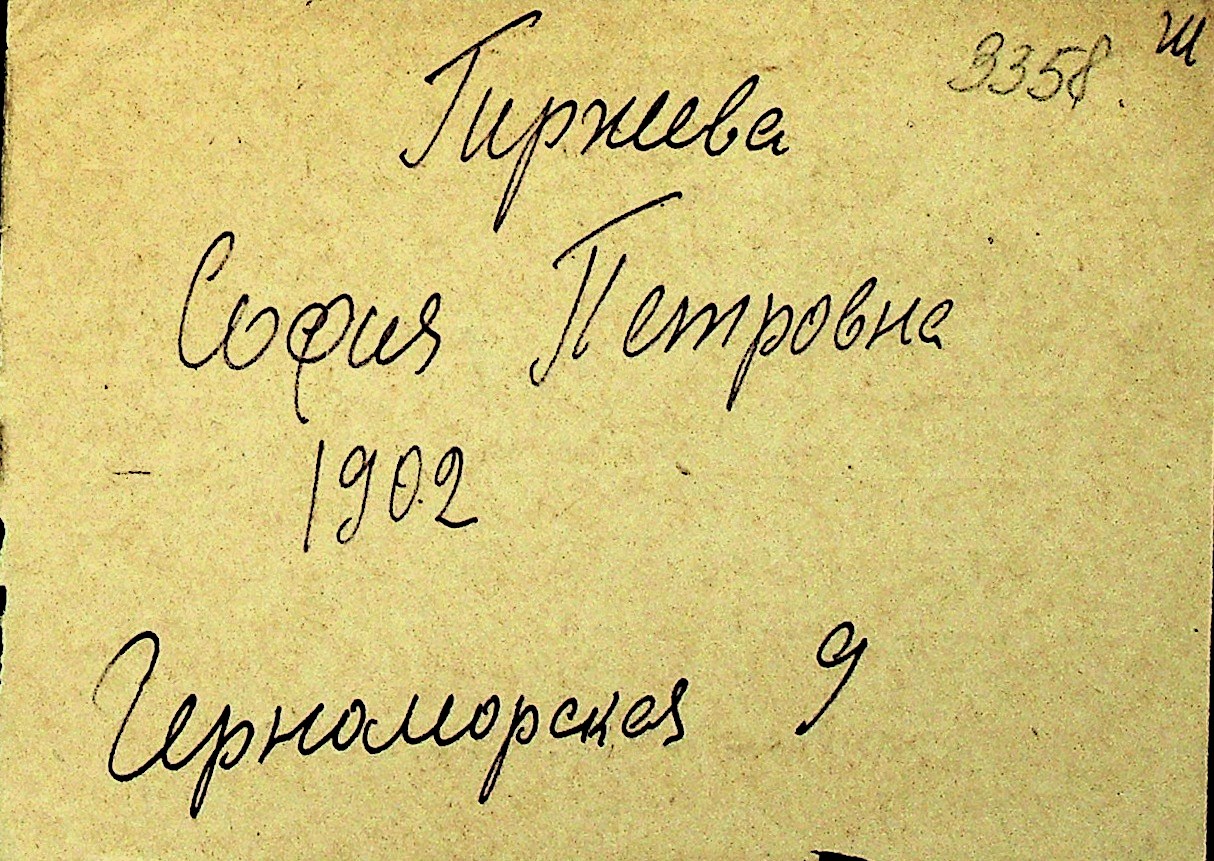 9358 Ш
Гиржева
София Петровна
1902
Черноморская 9